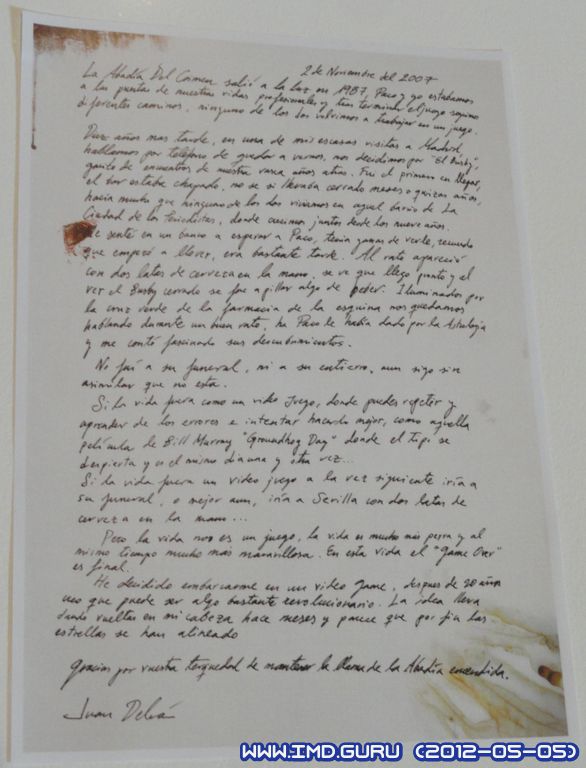 2 de Noviembre del 2007
La Abadía Del Crimen salió a la luz en 1987, Paco y yo estabamos
a las puertas de nuestras vidas profesionales y tras terminar el juego seguimos
diferentes caminos, ninguno de los dos volvimos a trabajar en un juego.
Diez años mas tarde, en una de mis escasas visitas a Madrid,
hablamos por teléfono de quedar a vernos, nos decidimos por "El Busby",
garito de encuentros de nuestra vasca años atras. Fui el primero en llegar,
el bar estaba chapado, no se si llevaba cerrado meses o quizas años,
hacia mucho que ninguno de los dos viviamos en aquel barrio de La
Ciudad de los Periodistas, donde crecimos juntos desde los nueve años.
Me senté en un banco a esperar a Paco, tenia ganas de verle, recuerdo
que empezó a llover, era bastante tarde. Al rato apareció
con dos latas de cerveza en la mano, se ve que llego pronto y al
ver el Busby cerrado se fue a pillar algo de beber. Iluminados por
la cruz verde de la farmacia de la esquina nos quedamos
hablando durante un buen rato, ha Paco le habia dado por la Astrologia
y me contó fascinado sus descubrimientos.
No fuí a su funeral, ni a su entierro, aun sigo sin
asimilar que no esta.
Si la vida fuera como un video juego, donde puedes repetir y
aprender de los errores e intentar hacerlo mejor, como aquella
película de Bill Murray "Groundhog Day" donde el tipo se
despierta y es el mismo dia una y otra vez...
Si la vida fuera un video juego a la vez siguiente iria a
su funeral, o mejor aun, iria a Sevilla con dos latas de
cerveza en la mano...
Pero la vida no es un juego, la vida es mucho más perra y al
mismo tiempo mucho mas maravillosa. En esta vida el "Game Over"
es final.
He decidido embarcarme en un video game, despues de 20 años
creo que puede ser algo bastante revolucionario. La idea lleva
dando vueltas en mi cabeza hace meses y parece que por fin las
estrellas se han alineado
Gracias por vuestra terquedad de mantener la llama de la Abadía encendida.
Juan Delcán
WWW.IMD.GURU (2012-05-05)